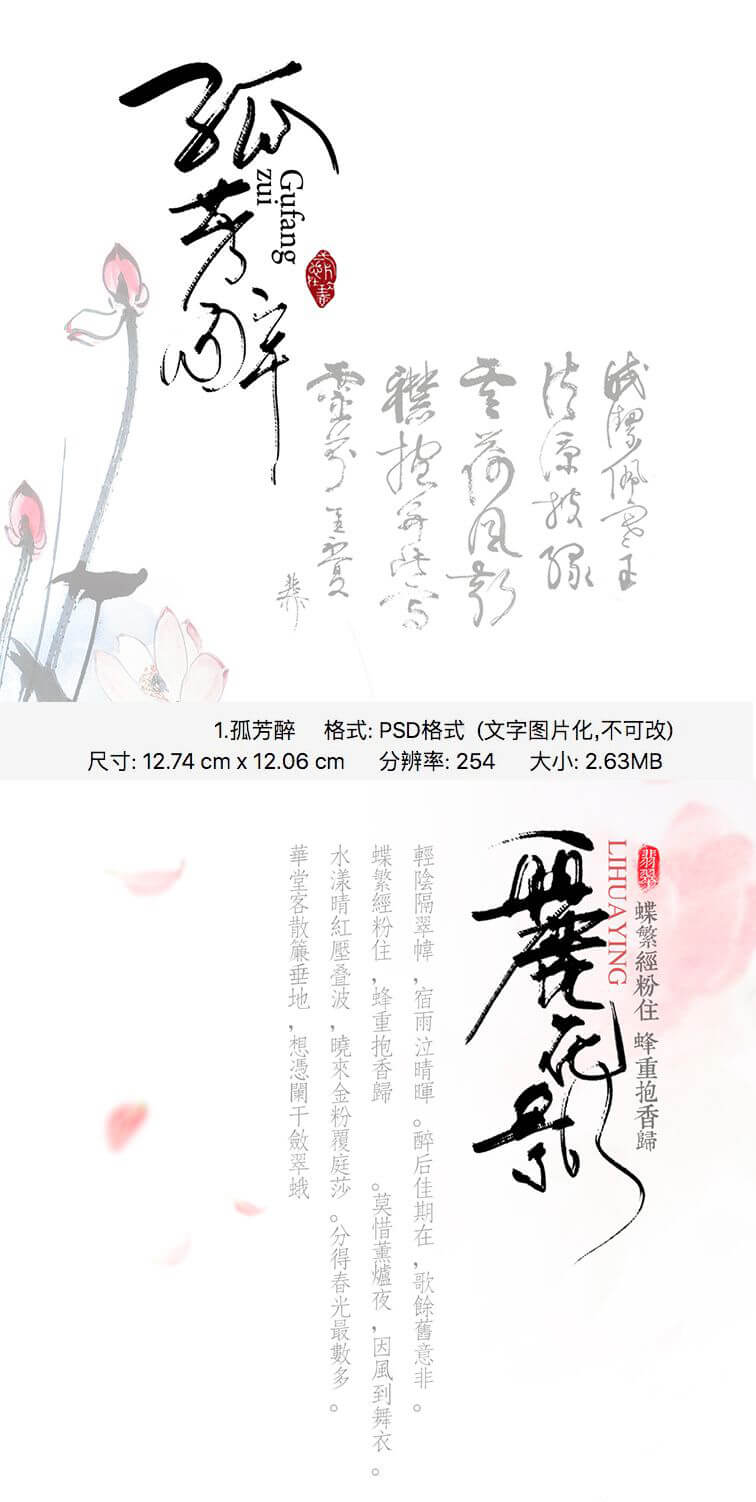 孤芳醉
Gufang
zui
1.孤芳醉 格式: PSD格式 (文字图片化,不可改)
尺寸: 12.74 cm x 12.06 cm 分辨率: 254 大小: 2.63MB
翡翠
蝶繁經粉住 蜂重抱香歸
LIHUAYING
麗花影
輕陰隔翠幃，宿雨泣晴暉。醉后佳期在，歌餘舊意非。
蝶繁經粉住，蜂重抱香歸 。莫惜薰爐夜，因風到舞衣。
水漾晴紅壓叠波，曉來金粉覆庭莎。分得春光最數多。
華堂客散簾垂地，想憑闌干斂翠蛾